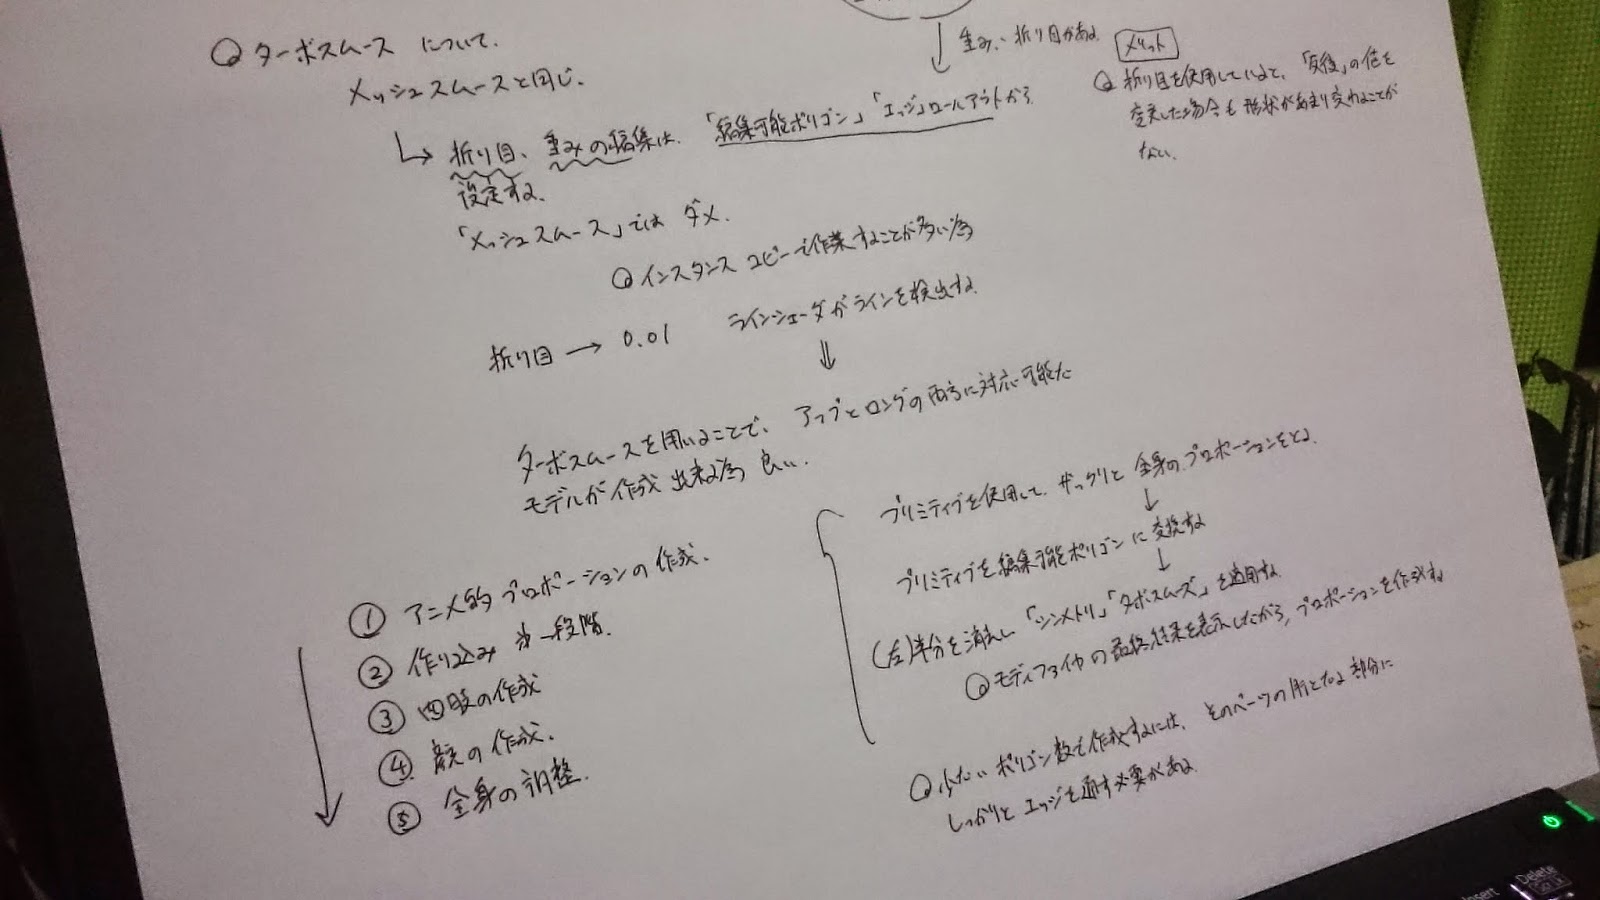 ターボスムース について.
メッシュスムースと同じ.
↓ 重み、折り目がある
メリット
折り目を使用していると、「反復」の値を
変更した場合も形状があまり変わることが
ない.
↳ 折り目、重みの編集は、「編集可能ポリゴン」「エッジ」ロールアウトから
設定する.
「メッシュスムース」では ダメ.
インスタンス コピーで作業することが多い為
折り目 → 0.01 ラインシェーダがラインを検出する.
⇓
ターボスムースを用いることで、アップとロングの両方に対応可能な
モデルが作成 出来る為 良い.
① アニメ的 プロポーションの作成.
② 作り込み 第一段階.
③ 四肢の作成
④ 顔の作成.
⑤ 全身の調整.
プリミティブを使用して、ザックリと 全身のプロポーションをとる.
↓
プリミティブを編集可能ポリゴンに変換する
↓
(左)半分を消去し「シンメトリ」「ターボスムーズ」を適用する
モディファイヤの最終結果を表示しながら、プロポーションを作成する
少ないポリゴン数で作成するには、そのパーツの角となる部分に
しっかりと エッジを通す必要がある.
Insert
Delete